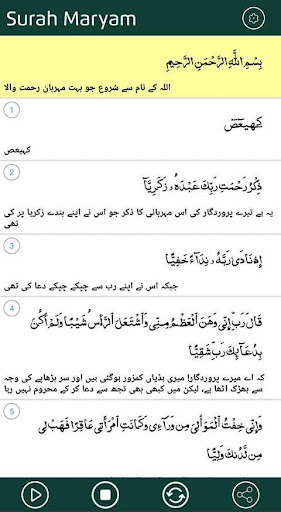 Surah Maryam
بِسْمِ اللَّهِ الرَّحْمَنِ الرَّحِيمِ
اللہ کے نام سے شروع جو بہت مہربان رحمت والا
1
كهيعص
کہیعص
2
ذِكْرُ رَحْمَتِ رَبِّكَ عَبْدَهُ زَكَرِيَّا
یہ ہے تیرے پروردگار کی اس مہربانی کا ذکر جو اس نے اپنے بندے زکریا پر کی
تھی
3
إِذْ نَادَى رَبَّهُ نِدَاءً خَفِيًّا
جبکہ اس نے اپنے رب سے چپکے چپکے دعا کی تھی
4
قَالَ رَبِّ إِنِّي وَهَنَ الْعَظْمُ مِنِّي وَاشْتَعَلَ الرَّأْسُ شَيْبًا وَلَمْ أَكُنْ
بِدُعَائِكَ رَبِّ شَقِيًّا
کہ اے میرے پروردگار! میری ہڈیاں کمزور ہوگئی ہیں اور سر بڑھاپے کی وجہ
سے بھڑک اٹھا ہے، لیکن میں کبھی بھی تجھ سے دعا کر کے محروم نہیں رہا
5
وَإِنِّي خِفْتُ الْمَوَالِيَ مِنْ وَرَائِي وَكَانَتِ امْرَأَتِي عَاقِرًا فَهَبْ لِي
مِنْ لَدُنْكَ وَلِيًّا